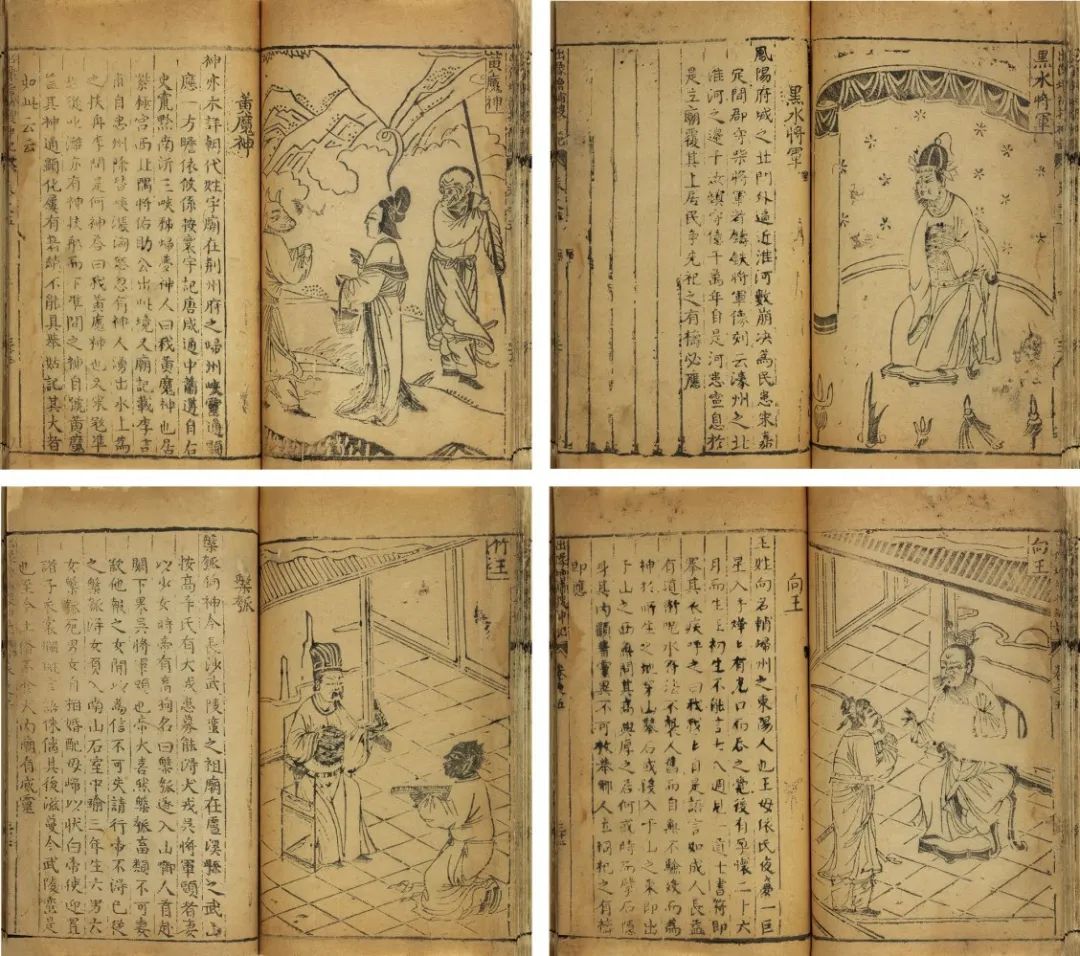 黃魔神
黃魔神
神亦未詳朝代姓字廟在荆州府之歸州峽靈通顯
應一方瞻依攸係按寰宇記唐咸通中蕭遘自右
史竄黔南泝三峽秭歸夢神人曰我黃魔神也居
紫極宮西北隅將佑助公出此境又廟記載李吉
甫自忠州除替峽漲洶怒忽有神人湧出水上為
之扶舟李問是何神答曰我黃魔神也又宋寇準
從此游亦有神扶船而下準問之神自號黃魔
蓋其神通顯化屢有異跡不能具舉姑記其大者
如此云云
黑水將軍
黑水將軍
鳳陽府城之北門外逼近淮河數崩決為民患宋嘉
定間郡守柴將軍者鑄鐵將軍像刻云濠州之北
淮河之邊千女鎮守億千萬年自是河患寧息於
是立廟覆其上居民爭先祀之有禱必應
竹王
槃瓠
槃瓠神今長沙武陵蠻之祖廟在盧溪縣之武山
按高辛氏有犬戎患募能得犬戎吳將軍頭者妻
以少女時帝有畜狗名曰槃瓠遂入山啣人首造
闕下果吳將軍頭也帝大喜然槃瓠畜類不可妻
欲他報之女聞以為信不可失請行帝不得已使
之槃瓠得女負入南山石室中踰三年生六男六
女槃瓠死男女自相婚配母歸以狀白帝使迎置
諸子衣裳斑斕言語侏離其後滋蔓今武陵蠻是
也至今土俗不食犬肉廟有威靈
向王
向王
王姓向名輔歸州之東陽人也王母依氏夜夢一巨
星入手燁上有口而吞之覺後有孕懷二十六
月而生王初生不能言七八週見一道士書符即
挈其衣疾呼之曰我我上自是語言如成人長益
有道術呪水存活不人舊而自
神於所生之地穿山鑿石或浸入于山之東即出
于山之西再問其高與厚之居何或時而劈石隱
身其內顯著靈異不可枚舉鄉人立祠祀之有禱
即應